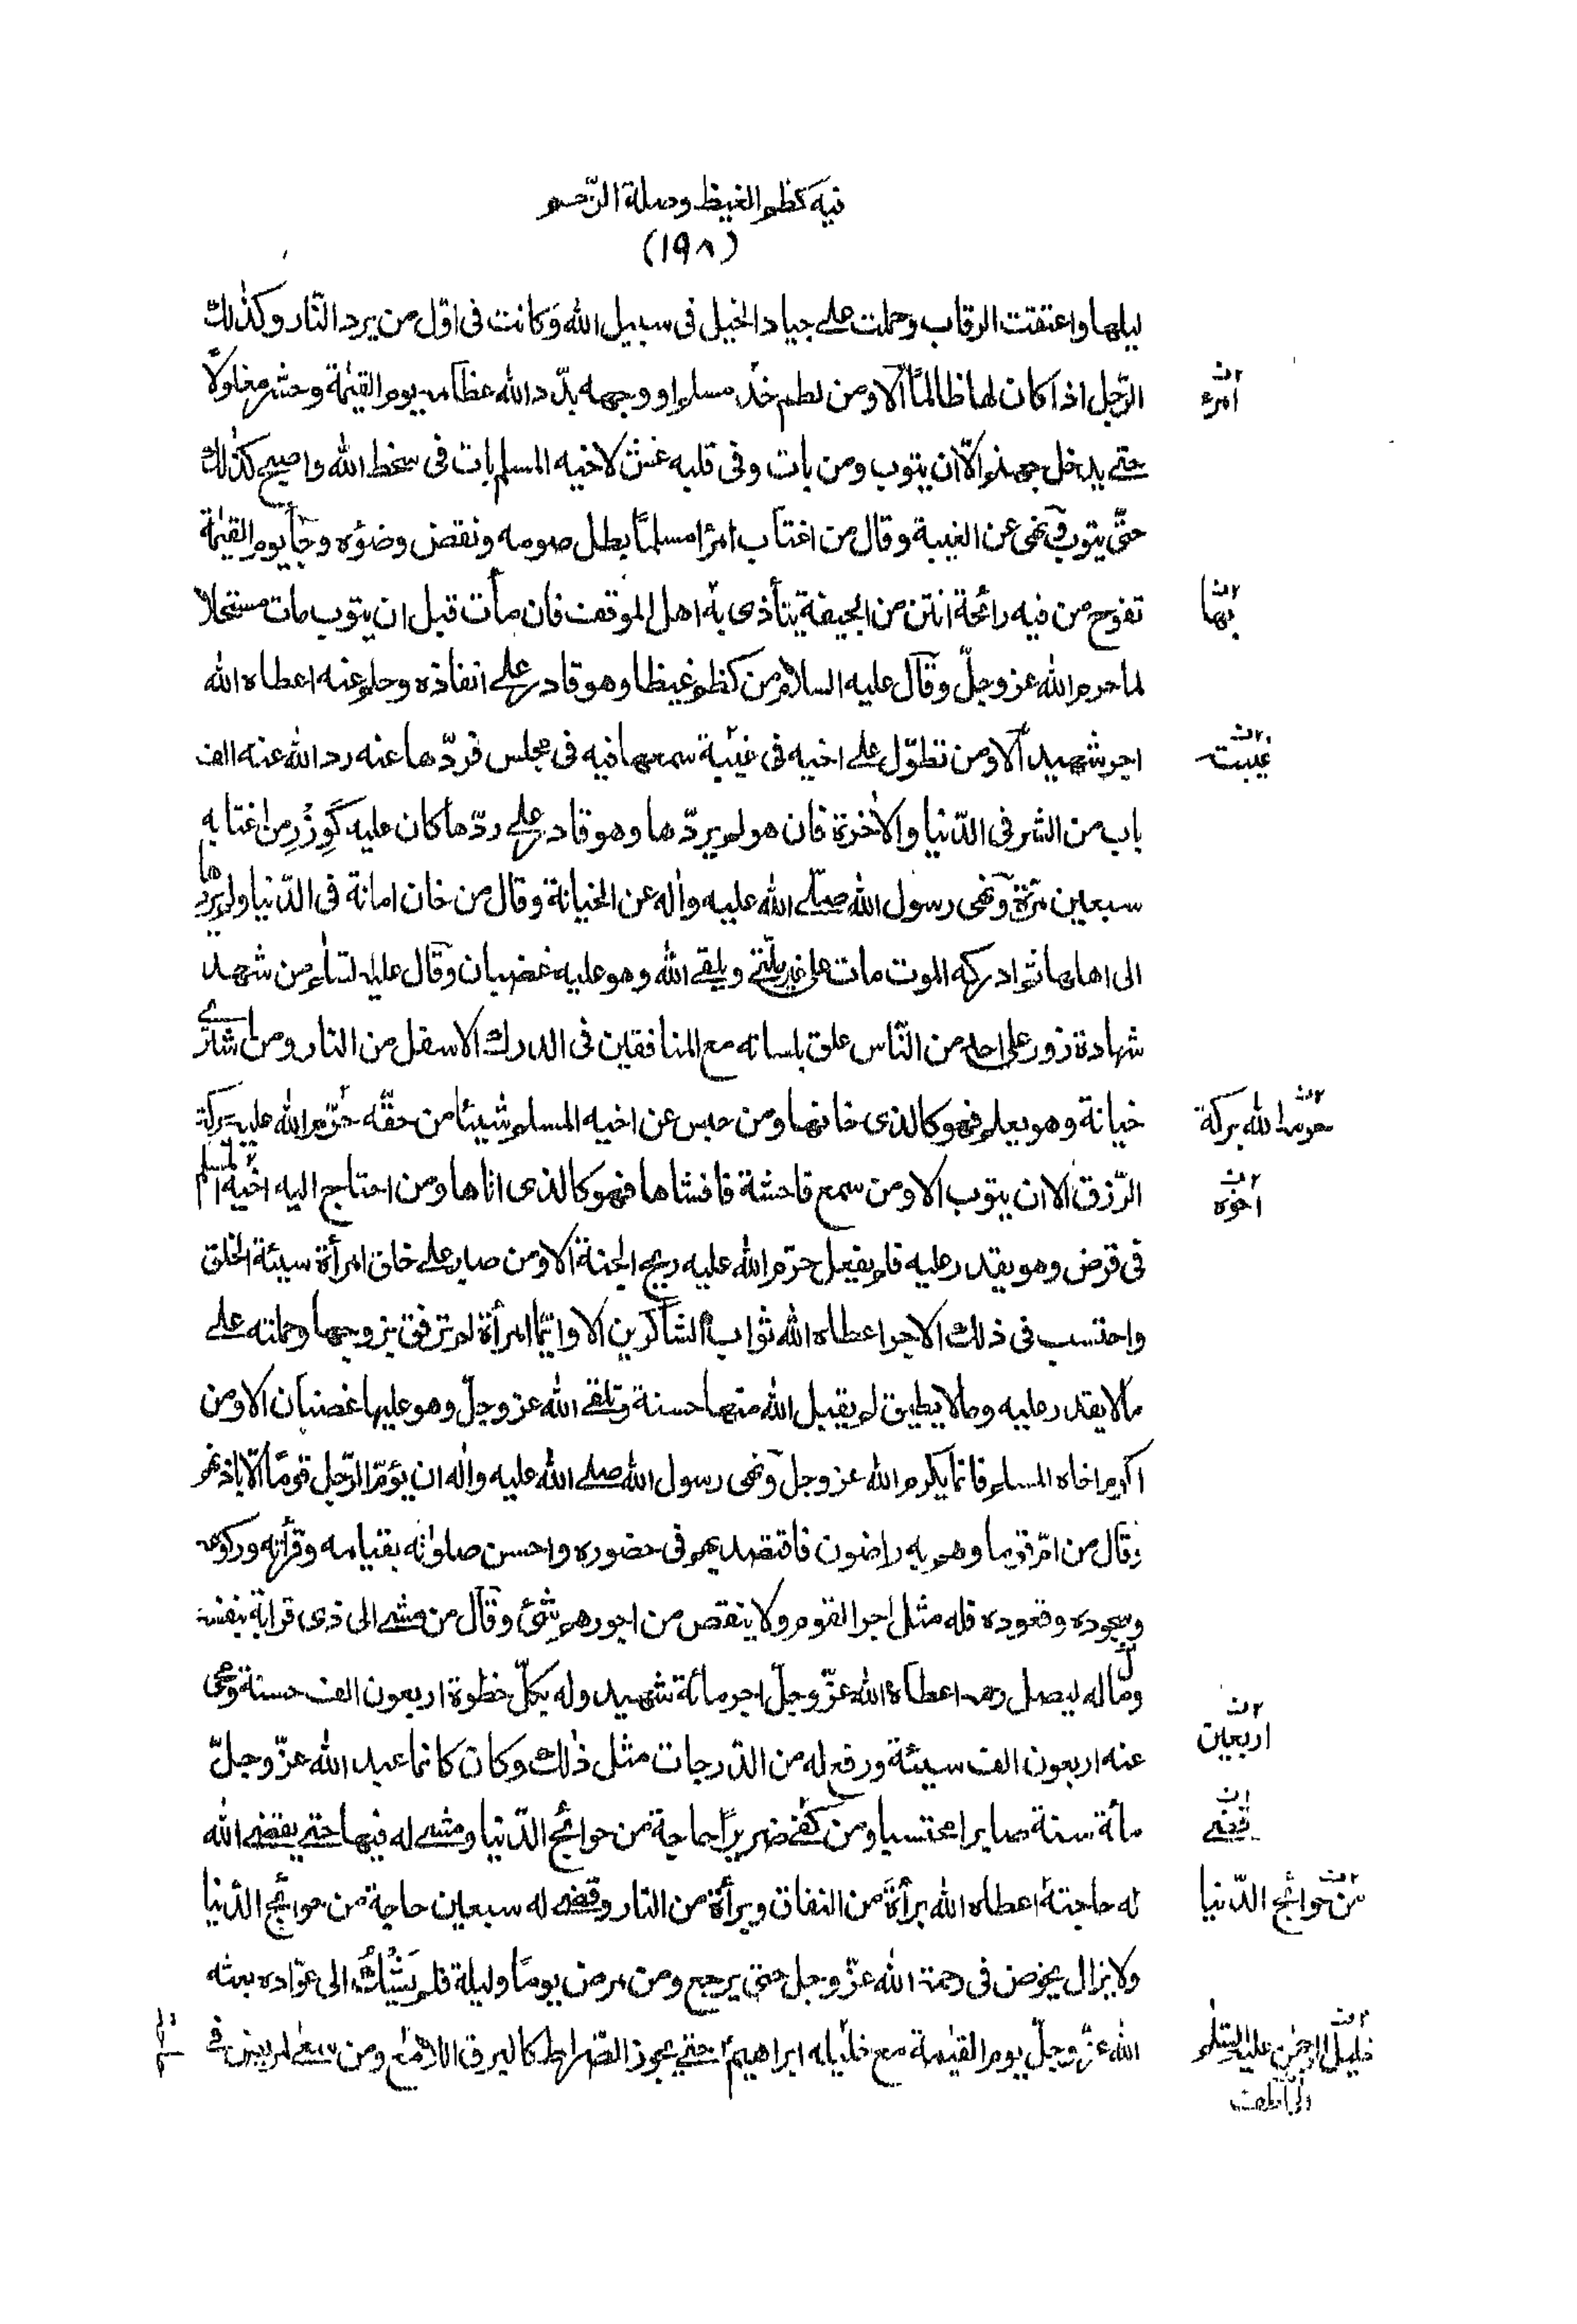 فيه كظم الغيظ وصلة الرّحم
(١٩٨)
ليلها واعتقت الرقاب وحملت على جياد الخيل فى سبيل الله وكانت فى اوّل من يرد النّار وكذٰلك
الرّجل اذا كان لها ظالمًا الا ومن لطم خدّ مسلم او وجهه بدّد الله عظامه يوم القيٰمة وحشر مغلولًا
حتى يدخل جهنم الّا ان يتوب ومن بات وفى قلبه غش لاخيه المسلم بات فى سخط الله واصبح كذٰلك
حتّى يتوب ونهى عن الغيبة وقال من اغتاب امرأ مسلمًا بطل صومه ونقض وضؤه وجآ يوم القيٰمة
تفوح من فيه رائحة انتن من الجيفة يتأذى به اهل الموقف فان مات قبل ان يتوب مات مستحلا
لما حرم الله عز وجلّ وقال عليه السلام من كظم غيظا وهو قادر على انفاذه وحلم عنه اعطاه الله
اجر شهيد الا ومن تطوّل على اخيه فى غيبة سمعها فيه فى مجلس فردّها عنه رد الله عنه الف
باب من الشر فى الدّنيا والاٰخرة فان هو لم يردّها وهو قادر على ردّها كان عليه كوِزْرِ من اغتابه
سبعين مرّة ونهى رسول الله صلّى الله عليه واٰله عن الخيانة وقال من خان امانة فى الدّنيا ولم يردّها
الى اهلها ثم ادركه الموت مات على غير ملّتى ويلقى الله وهو عليه غضبان وقال عليه السّلم من شهد
شهادة زور على احد من النّاس علق بلسانه مع المنافقين فى الدرك الاسفل من النار ومن اشترى
خيانة وهو يعلم فهو كالذى خانها ومن حبس عن اخيه المسلم شيئا من حقّه حرّم الله عليه بركة
الرّزق الا ان يتوب الا ومن سمع فاحشة فافشاها فهو كالذى اتاها ومن احتاج اليه اخيه المسلم
فى قرض وهو يقدر عليه فلم يفعل حرّم الله عليه ريح الجنة الا ومن صبر على خلق امرأة سيئة الخلق
واحتسب فى ذلك الاجر اعطاه الله ثواب الشاكرين الا وايّما امرأة لم ترفق بزوجها وحملته على
ما لا يقدر عليه وما لا يطيق لم يقبل الله منها حسنة وتلقى الله عز وجلّ وهو عليها غضبان الا ومن
اكرم اخاه المسلم فانما يكرم الله عز وجل ونهى رسول الله صلى الله عليه واٰله ان يؤمّ الرّجل قومًا الّا باذنهم
وقال من امّ قوما وهم به راضون فاقتصد بهم فى حضوره واحسن صلوٰته بقيامه وقرأته وركوعه
وسجوده وقعوده فله مثل اجر القوم ولا ينقص من اجورهم شئ وقال من مشى الى ذى قرابة بنفسه
وماله ليصل رحمه اعطاه الله عزّ وجلّ اجر مائة شهيد وله بكلّ خطوة اربعون الف حسنة ومحى
عنه اربعون الف سيئة ورفع له من الدّرجات مثل ذٰلك وكان كانما عبد الله عزّ وجلّ
مأة سنة صابرا محتسبا ومن كفى ضريرًا حاجة من حوائج الدّنيا ومشى له فيها حتى يقضى الله
له حاجته اعطاه الله برأة من النفاق وبرأة من النار وقضى له سبعين حاجة من حوائج الدّنيا
ولا يزال يخوض فى رحمة الله عزّ وجل حتى يرجع ومن مرض يومًا وليلة فلم يَشْكُ الى عوّاده بعثه
الله عزّ وجلّ يوم القيٰمة مع خليله ابراهيم حتى يجوز الصّراط كالبرق اللامع ومن سعى لمريض فى
امرء
بها
غيبت
حرم الله بركة
اخوه
اربعين
قضى
من حوائج الدّنيا
خليل الرحمٰن عليه السّلم